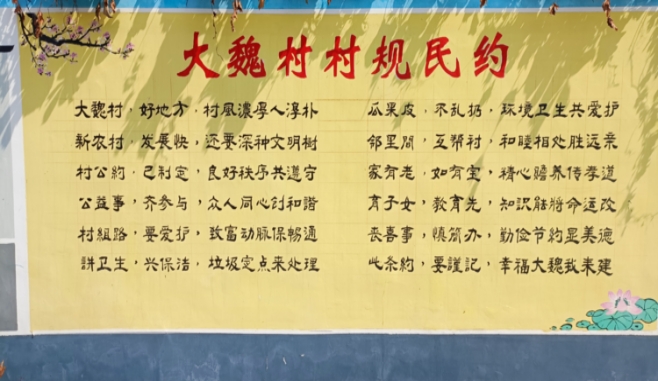 大魏村村规民约
大魏村，好地方，村風濃厚人淳朴
新农村，发展快，还要深种文明樹
村公約，已制定，良好秩序共遵守
公益事，齐参与，众人同心创和諧
村組路，要爱护，致富动脉保暢通
講卫生，兴保洁，垃圾定点来处理
瓜果皮，不乱扔，环境卫生共爱护
邻里間，互帮衬，和睦相处胜远亲
家有老，如有宝，精心贍养传孝道
育子女，教育先，知识能將命运改
丧喜事，慎简办，勤俭节約显美德
此条約，要謹記，幸福大魏我来建